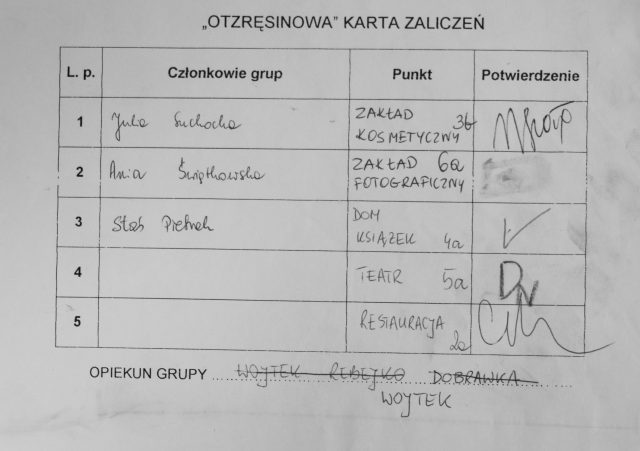 „OTZRĘSINOWA” KARTA ZALICZEŃ
L. p. Członkowie grup Punkt Potwierdzenie
1 Julia Suchocka ZAKŁAD KOSMETYCZNY 3b
2 Ania Świątkowska ZAKŁAD FOTOGRAFICZNY 6a
3 Staś Pietrek DOM KSIĄŻEK 4a
4 TEATR 5a
5 RESTAURACJA 2a
OPIEKUN GRUPY WOJTEK REBEJKO DOBRAWKA
WOJTEK